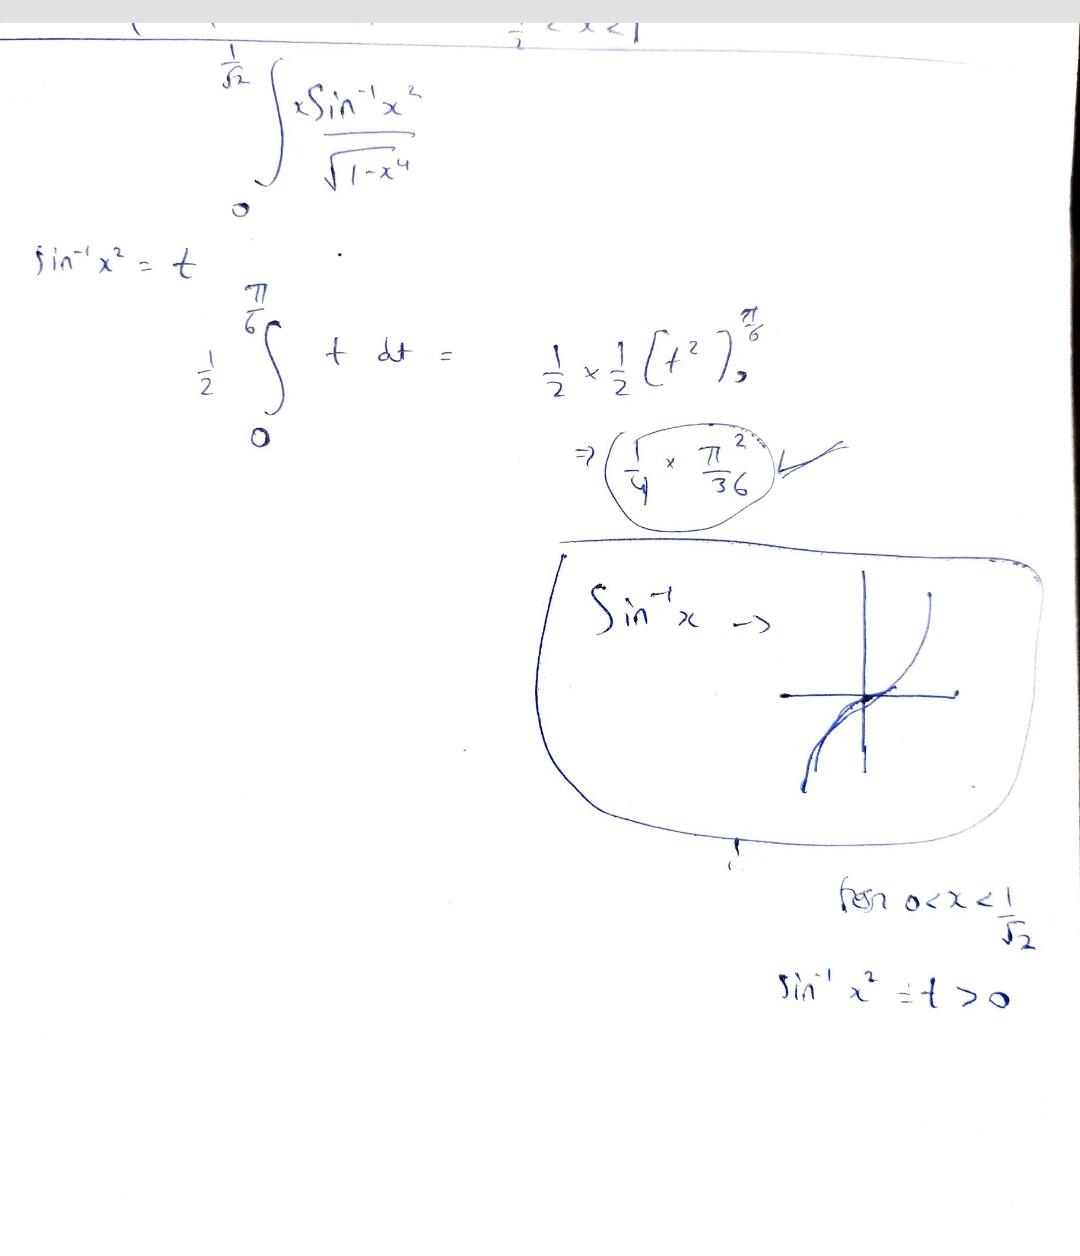 1/2 < x < 1
∫₀^{1/√2} x Sin⁻¹x² / √1-x⁴
sin⁻¹x² = t
1/2 ∫₀^{π/6} t dt = 1/2 × 1/2 [t²]₀^{π/6}
⇒ 1/4 × π²/36 ✓
Sin⁻¹x →
for 0<x<1/√2
sin⁻¹ x² = t > 0